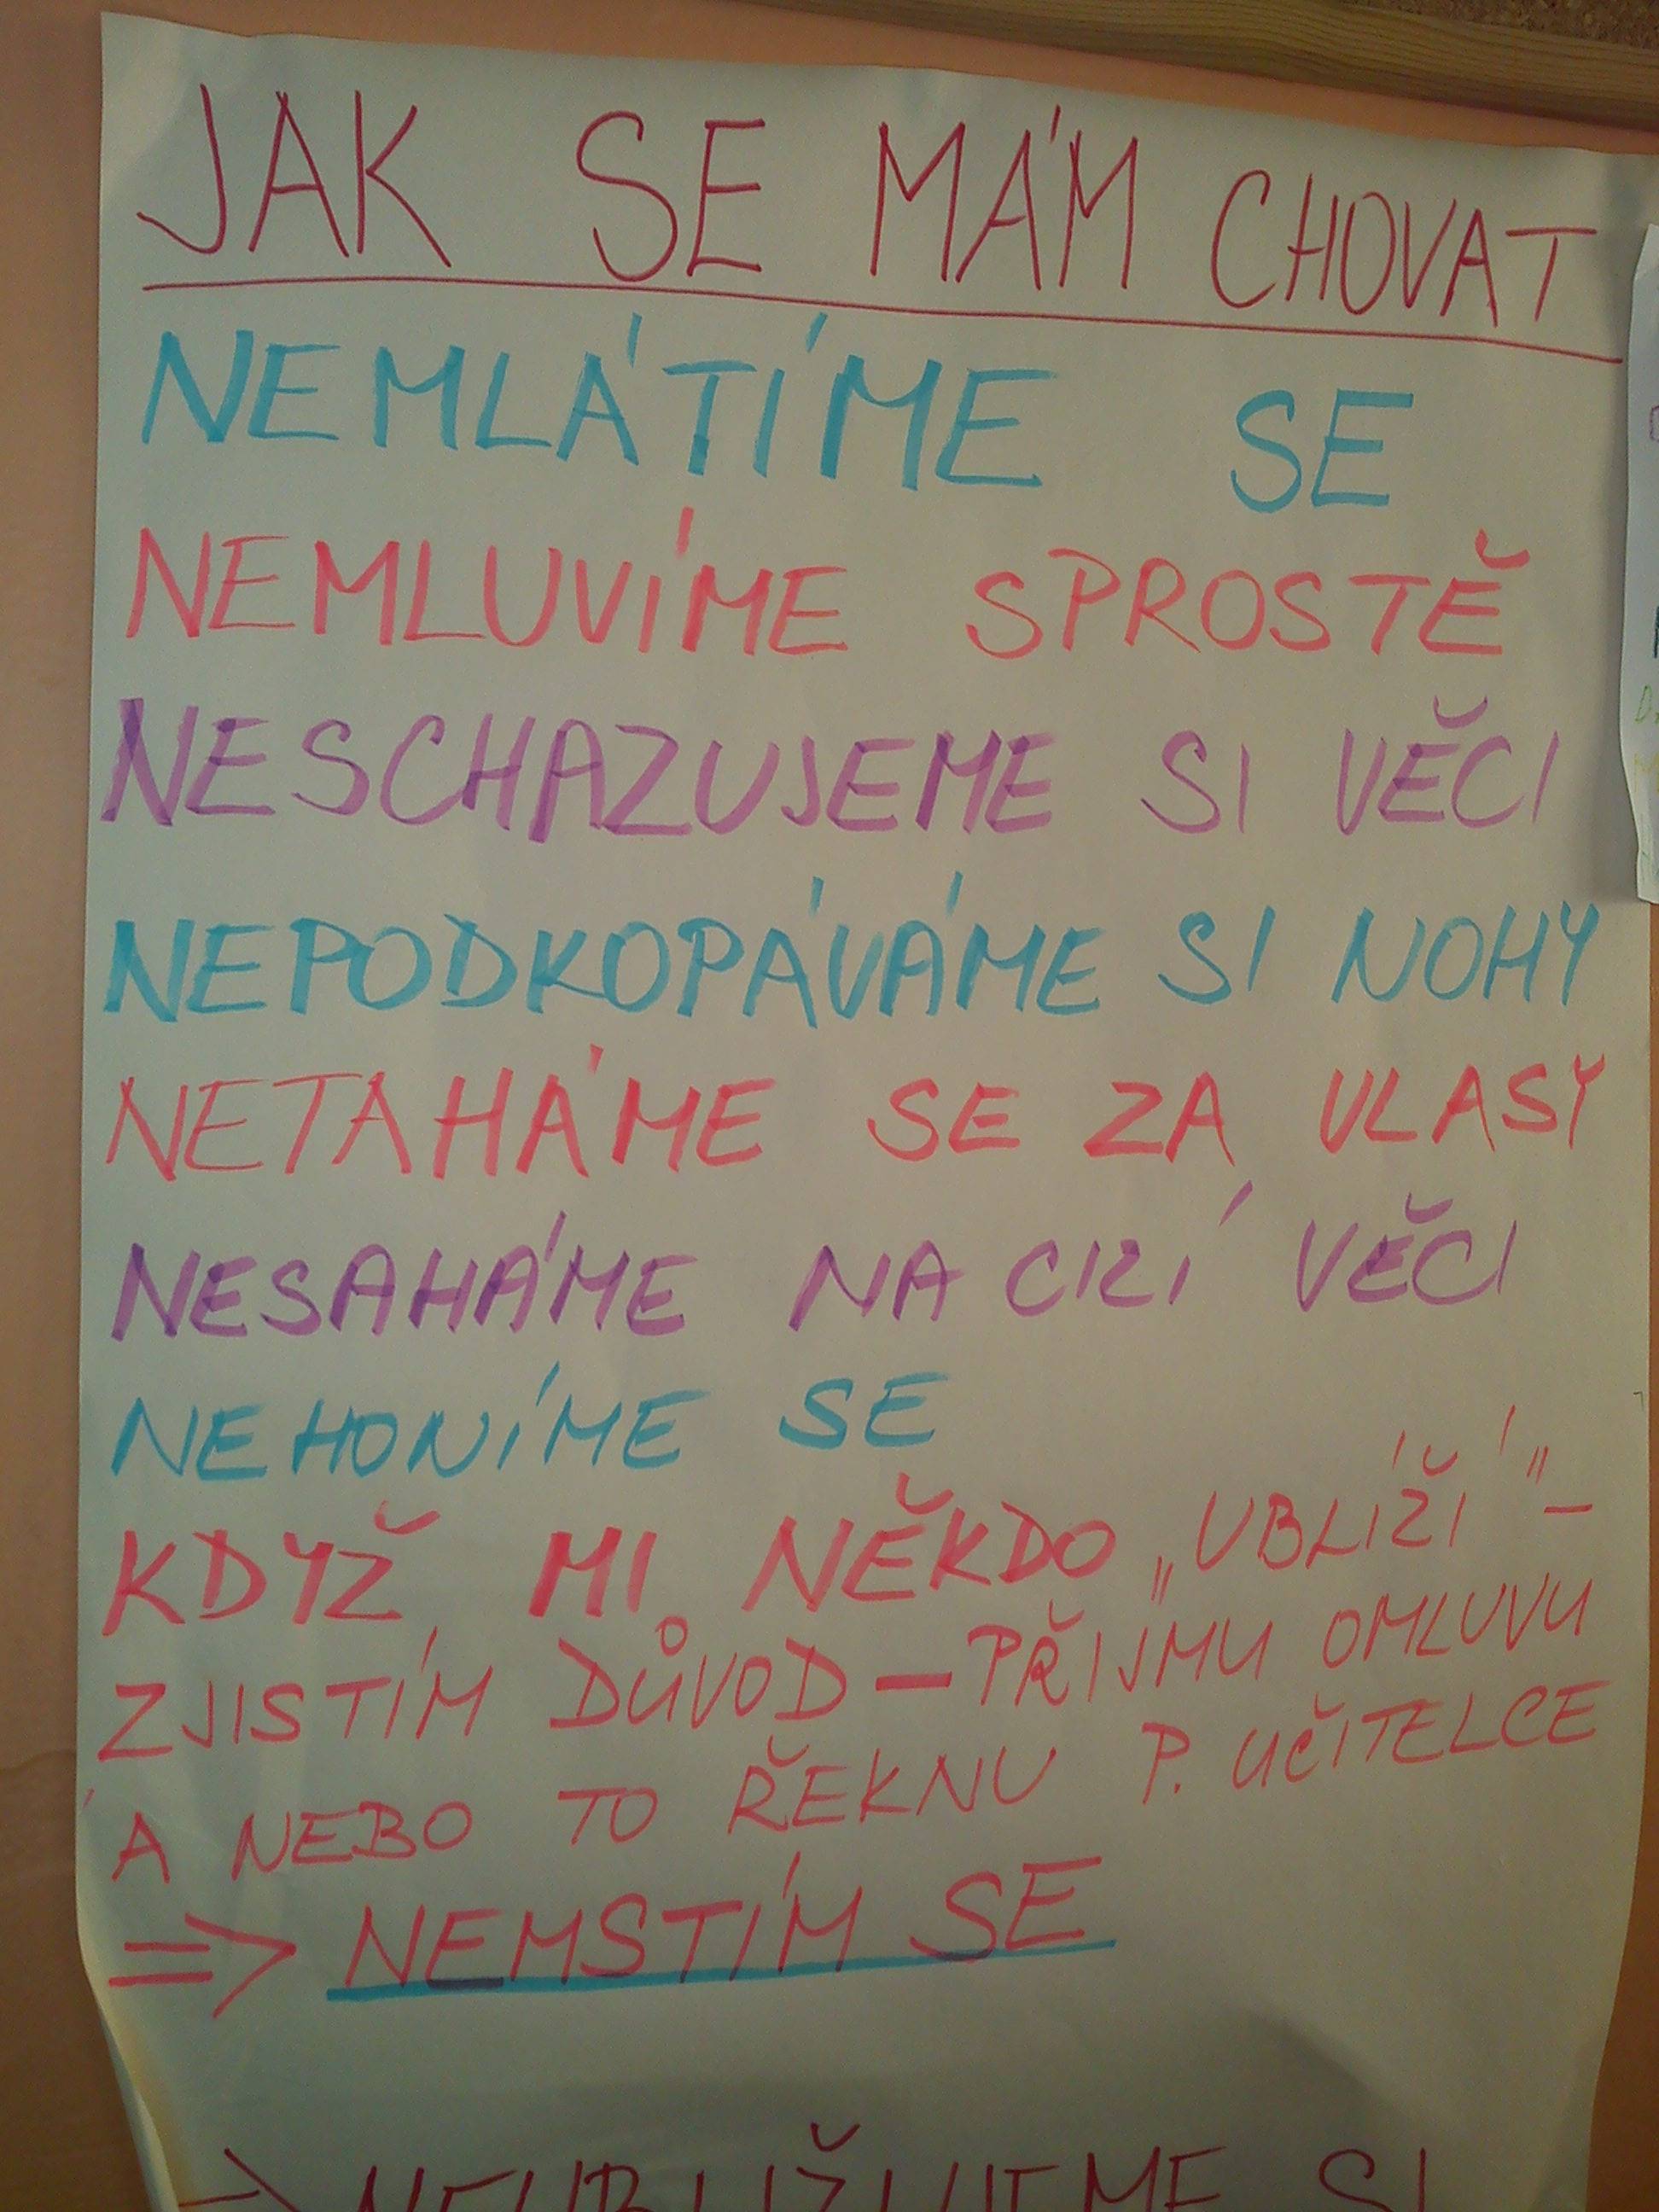 JAK SE MÁM CHOVAT
NEMLÁTÍME SE
NEMLUVÍME SPROSTĚ
NESCHAZUJEME SI VĚCI
NEPODKOPÁVÁME SI NOHY
NETAHÁME SE ZA VLASY
NESAHÁME NA CIZÍ VĚCI
NEHONÍME SE
KDYŽ MI NĚKDO „UBLÍŽÍ" -
ZJISTÍM DŮVOD - PŘIJMU OMLUVU
A NEBO TO ŘEKNU P. UČITELCE
=> NEMSTÍM SE
=> NEUBLIŽUJEME SI